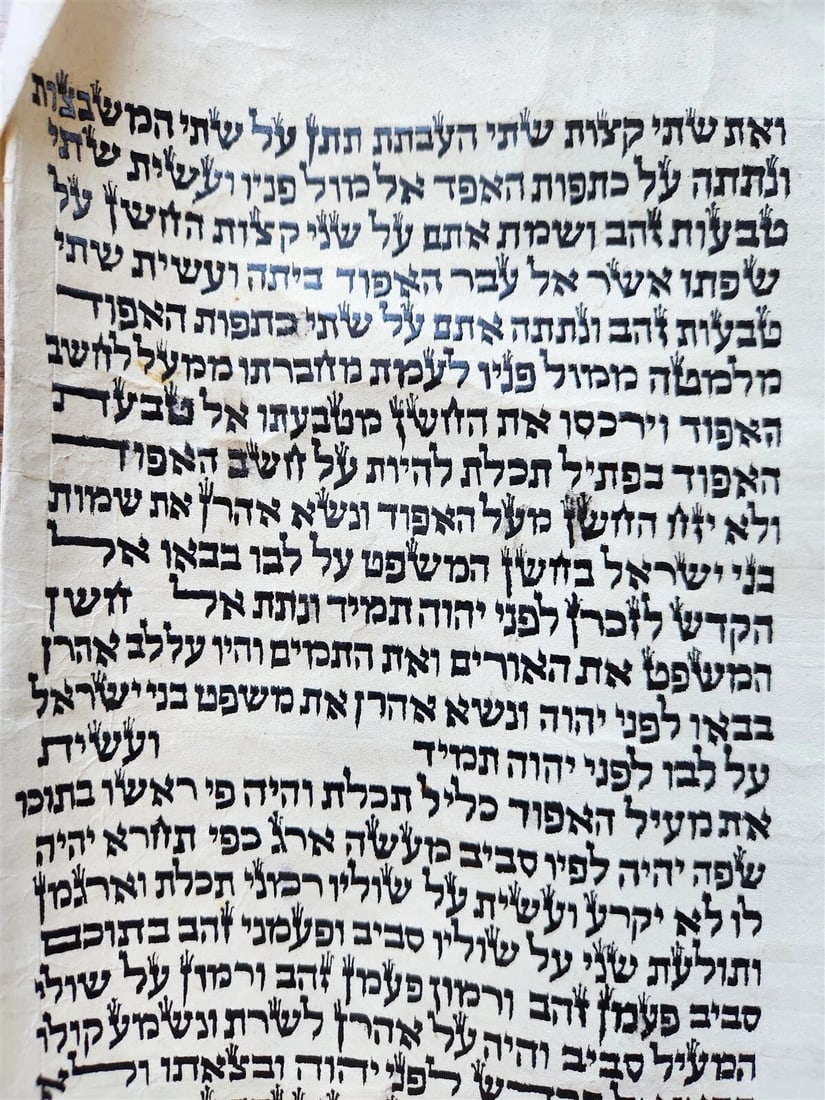 ואת שתי קצות שתי העבתת תתן על שתי המשבצות
ונתתה על כתפות האפד אל מול פניו ועשית שתי
טבעות זהב ושמת אתם על שני קצות החשן על
שפתו אשר אל עבר האפוד ביתה ועשית שתי
טבעות זהב ונתתה אתם על שתי כתפות האפוד
מלמטה ממול פניו לעמת מחברתו ממעל לחשב
האפוד וירכסו את החשן מטבעתו אל טבעת
האפוד בפתיל תכלת להיות על חשב האפוד
ולא יזח החשן מעל האפוד ונשא אהרן את שמות
בני ישראל בחשן המשפט על לבו בבאו אל
הקדש לזכרן לפני יהוה תמיד ונתת אל חשן
המשפט את האורים ואת התמים והיו על לב אהרן
בבאו לפני יהוה ונשא אהרן את משפט בני ישראל
על לבו לפני יהוה תמיד ועשית
את מעיל האפוד כליל תכלת והיה פי ראשו בתוכו
שפה יהיה לפיו סביב מעשה ארג כפי תחרא יהיה
לו לא יקרע ועשית על שוליו רמני תכלת וארגמן
ותולעת שני על שוליו סביב ופעמני זהב בתוכם
סביב פעמן זהב ורמון פעמן זהב ורמון על שולי
המעיל סביב והיה על אהרן לשרת ונשמע קולו
לפני יהוה ובצאתו ולא